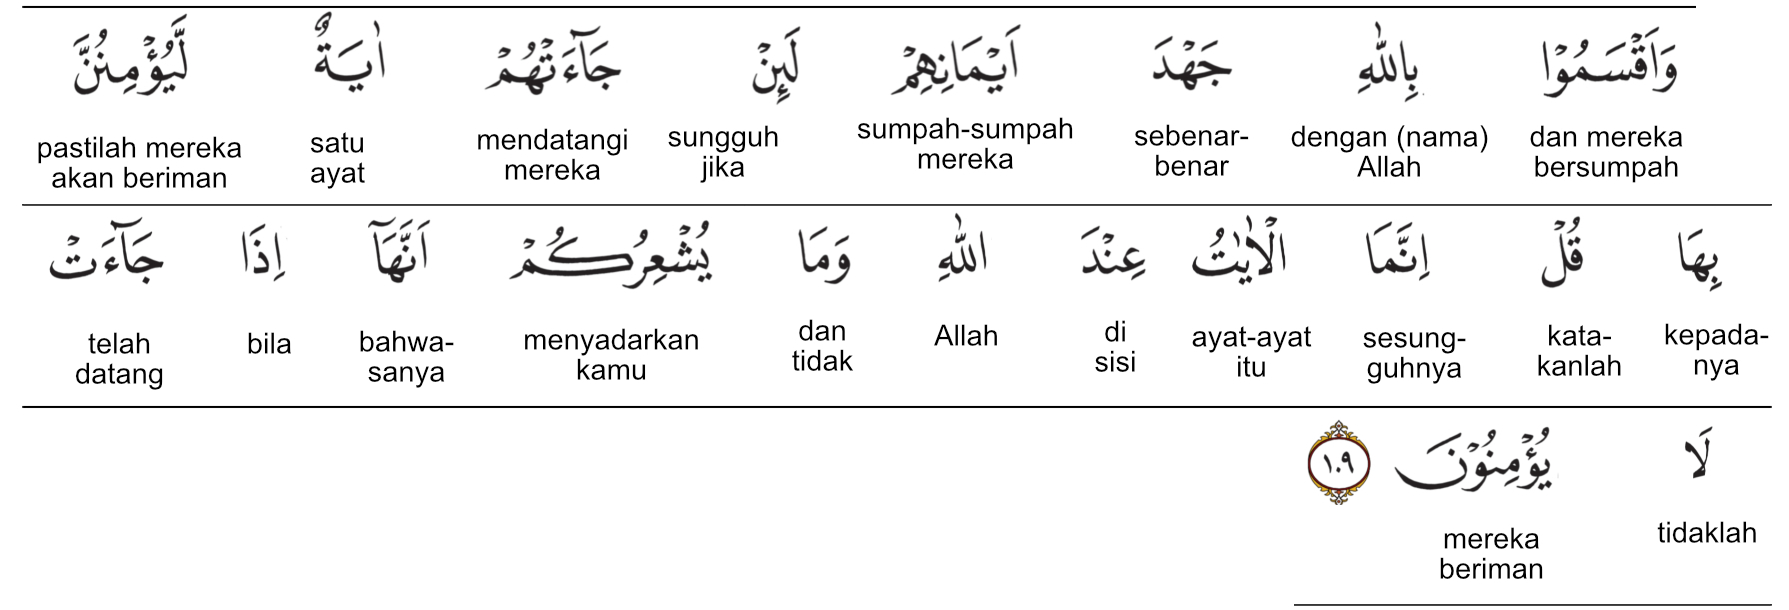 وَاَقْسَمُوْا بِاللّٰهِ جَهْدَ اَيْمَانِهِمْ لَىِٕنْ جَاۤءَتْهُمْ اٰيَةٌ لَّيُؤْمِنُنَّ
dan mereka bersumpah dengan (nama) Allah sebenar-benar sumpah-sumpah mereka sungguh jika mendatangi mereka satu ayat pastilah mereka akan beriman
بِهَا قُلْ اِنَّمَا الْاٰيٰتُ عِنْدَ اللّٰهِ وَمَا يُشْعِرُكُمْ اَنَّهَآ اِذَا جَاۤءَتْ
kepada-nya kata-kanlah sesung-guhnya ayat-ayat itu di sisi Allah dan tidak menyadarkan kamu bahwa-sanya bila telah datang
لَا يُؤْمِنُوْنَ ١٠٩
tidaklah mereka beriman